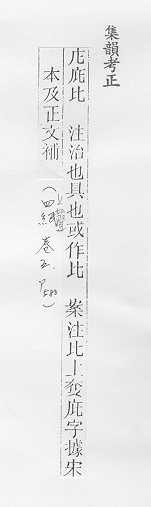 集韻考正
庀庇比　注治也具也或作比　案注比上奪庇字據宋
本及正文補
(四紙 卷五 P.588)